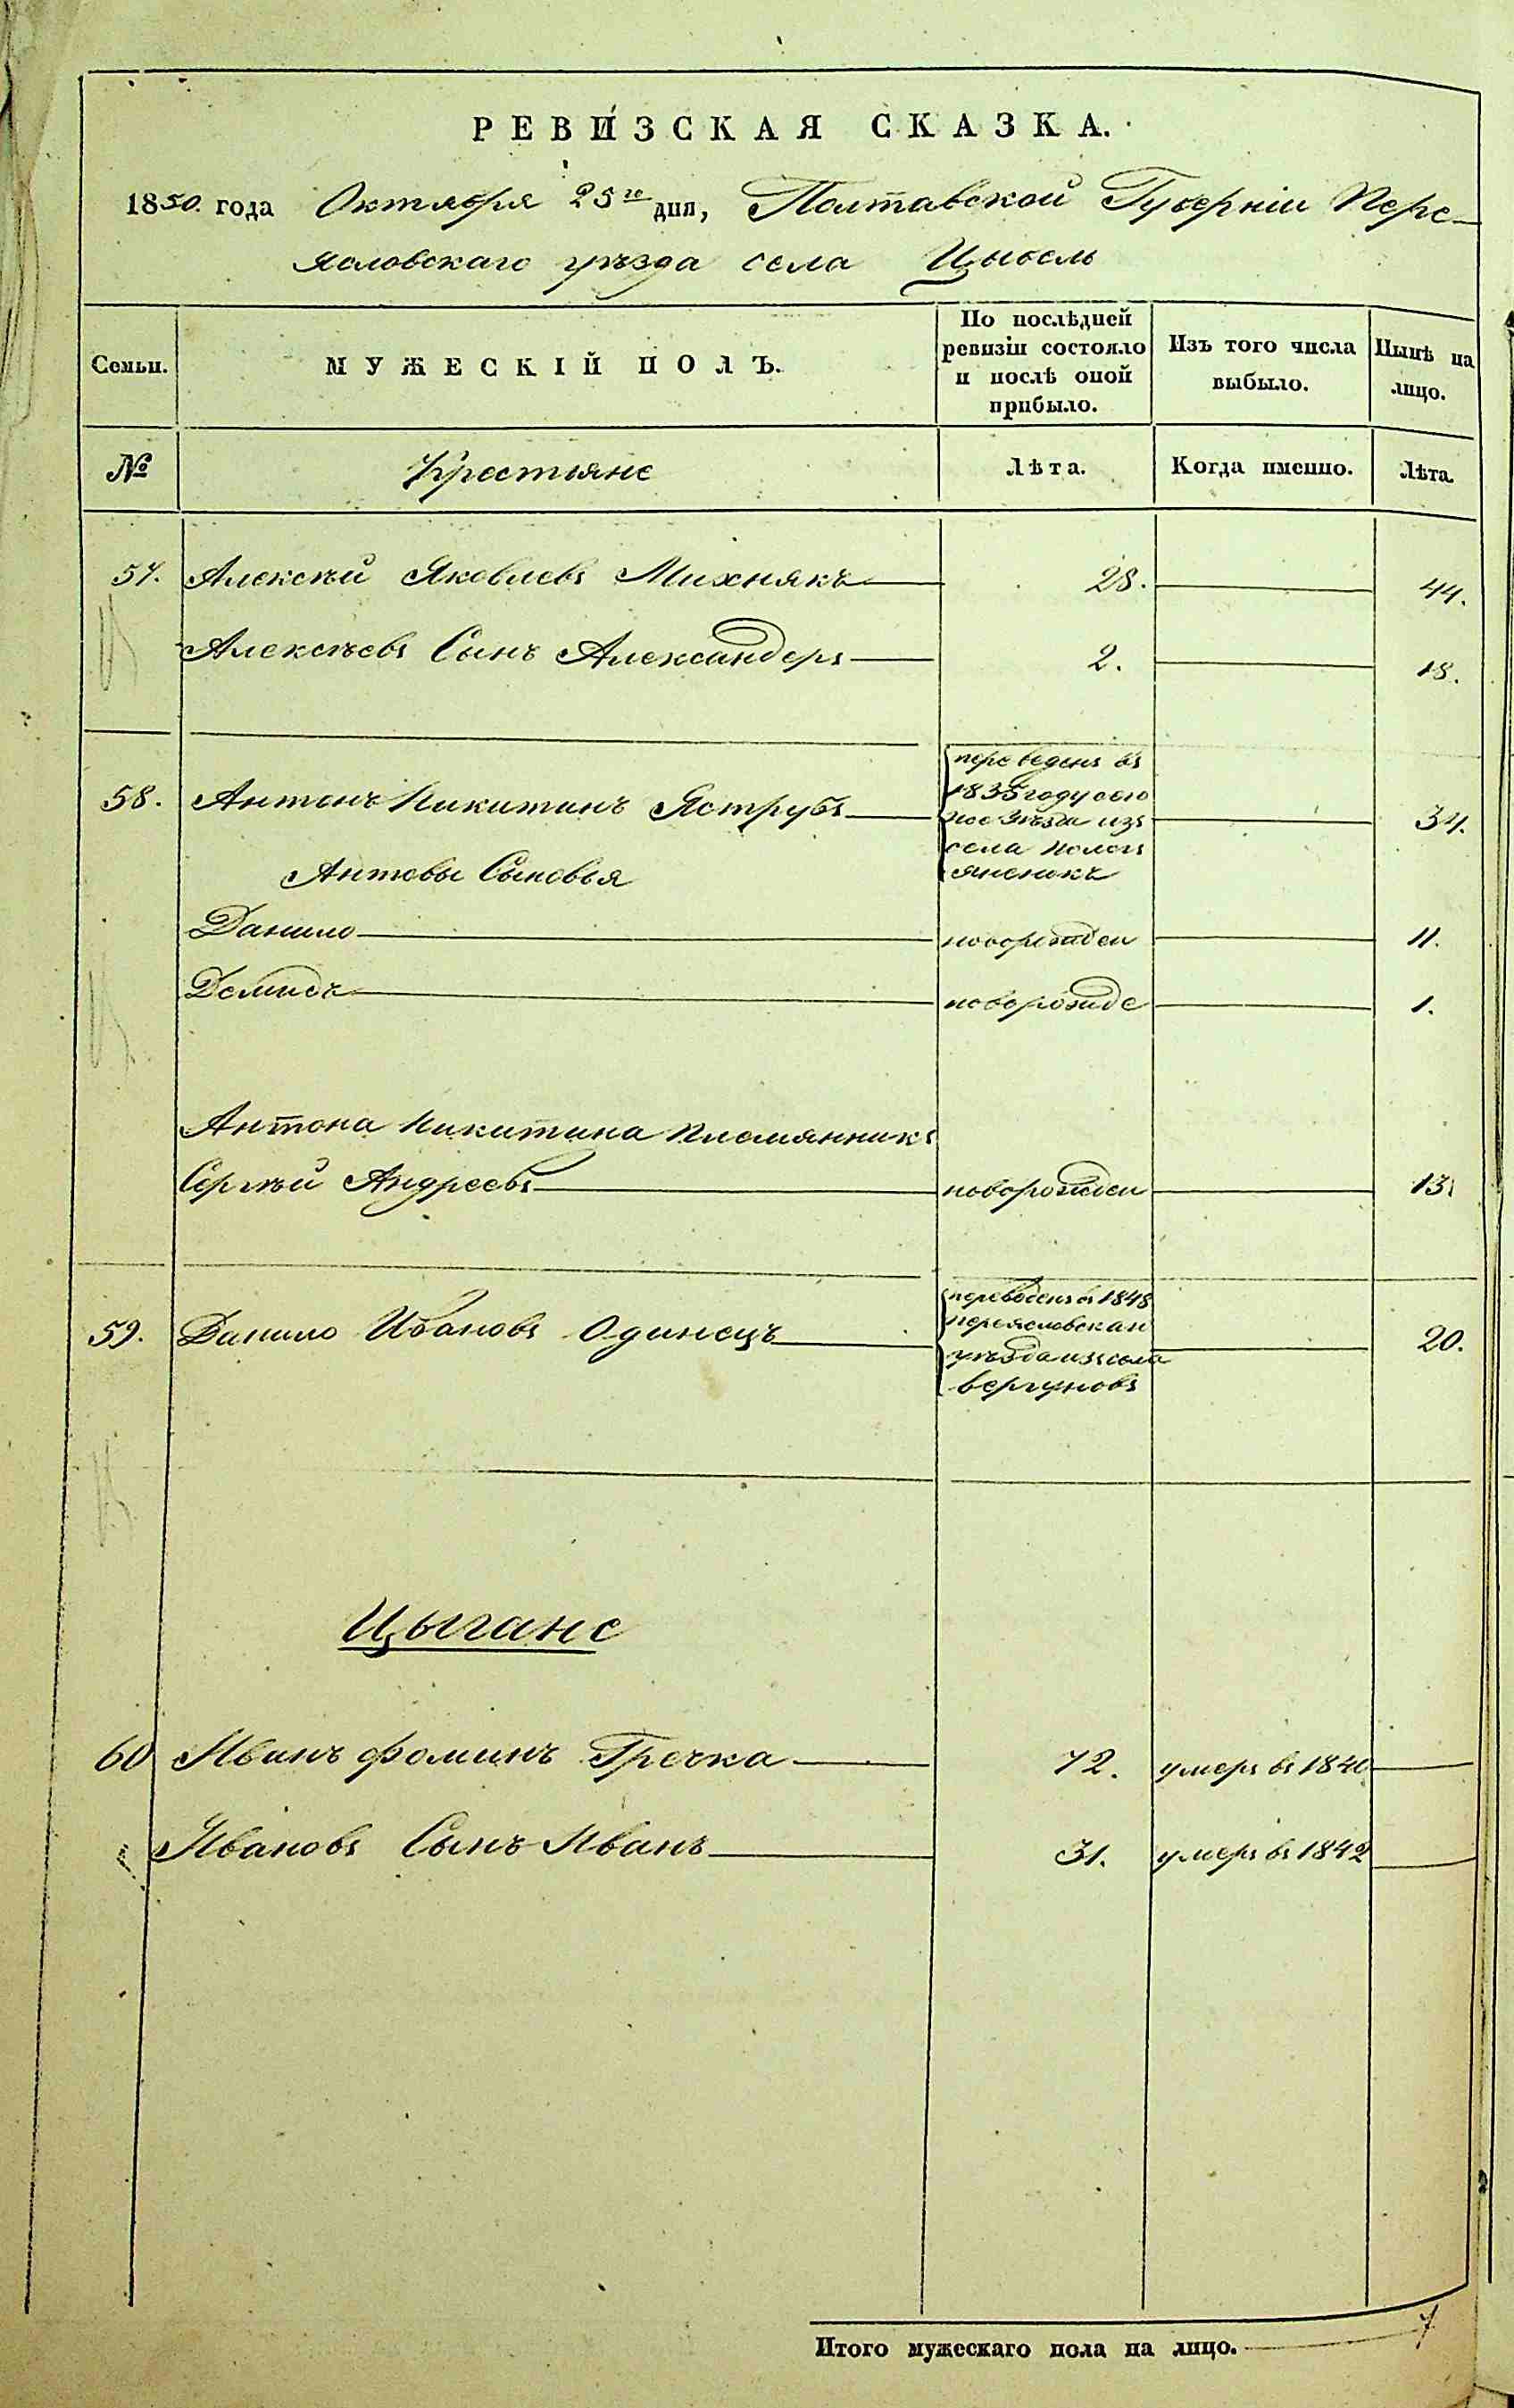 РЕВИЗСКАЯ СКАЗКА.
1850. года Октября 25го дня, Полтавской Губерніи Пере-
яславскаго уѣзда села Цыбель
Семьи. МУЖЕСКІЙ ПОЛЪ. По послѣдней ревизіи состояло и послѣ оной прибыло. Изъ того числа выбыло. Нынѣ на лицо.
№ Крестьяне Лѣта. Когда именно. Лѣта.
57. Алексѣй Яковлевъ Михнякъ 28. 44.
Алексѣевъ Сынъ Александеръ 2. 18.
58. Антонъ Никитинъ Яструбъ переведенъ въ 1835 году сего же уѣзда изъ села 34.
Антовы Сыновья
Данило новорожден 11.
Демидъ новорожде 1.
Антона Никитина Племянникъ
Сергѣй Андреевъ новорожден 13.
59. Данило Ивановъ Одинецъ переведенъ въ 1848 переяславскаго уѣзда изъ села Вергуновъ 20.
Цыгане
60 Иванъ Фоминъ Гречка 72. умеръ въ 1840
Ивановъ Сынъ Иванъ 31. умеръ въ 1842
Итого мужескаго пола на лицо. 7